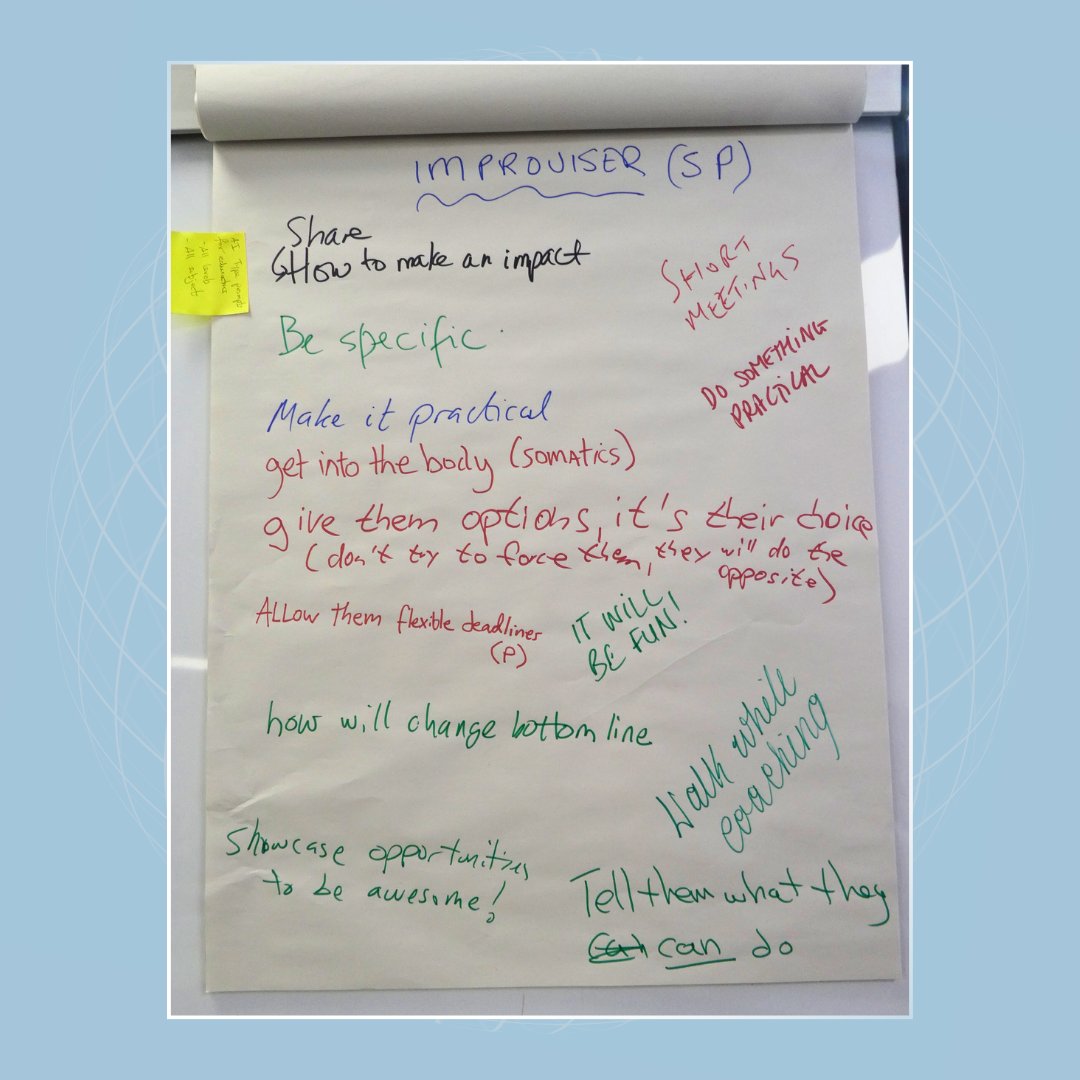 IMPROVISER (SP)
Share
How to make an impact
SHORT
MEETINGS
Be specific
DO SOMETHING
PRACTICAL
Make it practical
get into the body (SOMATICS)
give them options, it's their choice
(don't try to force them, they will do the
opposite)
ALLOW THEM flexible deadlines
(P)
IT WILL
BE FUN!
how will change bottom line
Walk while
coaching
Showcase opportunities
to be awesome!
Tell them what they
can do
AI Type prompts
for educators
- All levels
- All subject